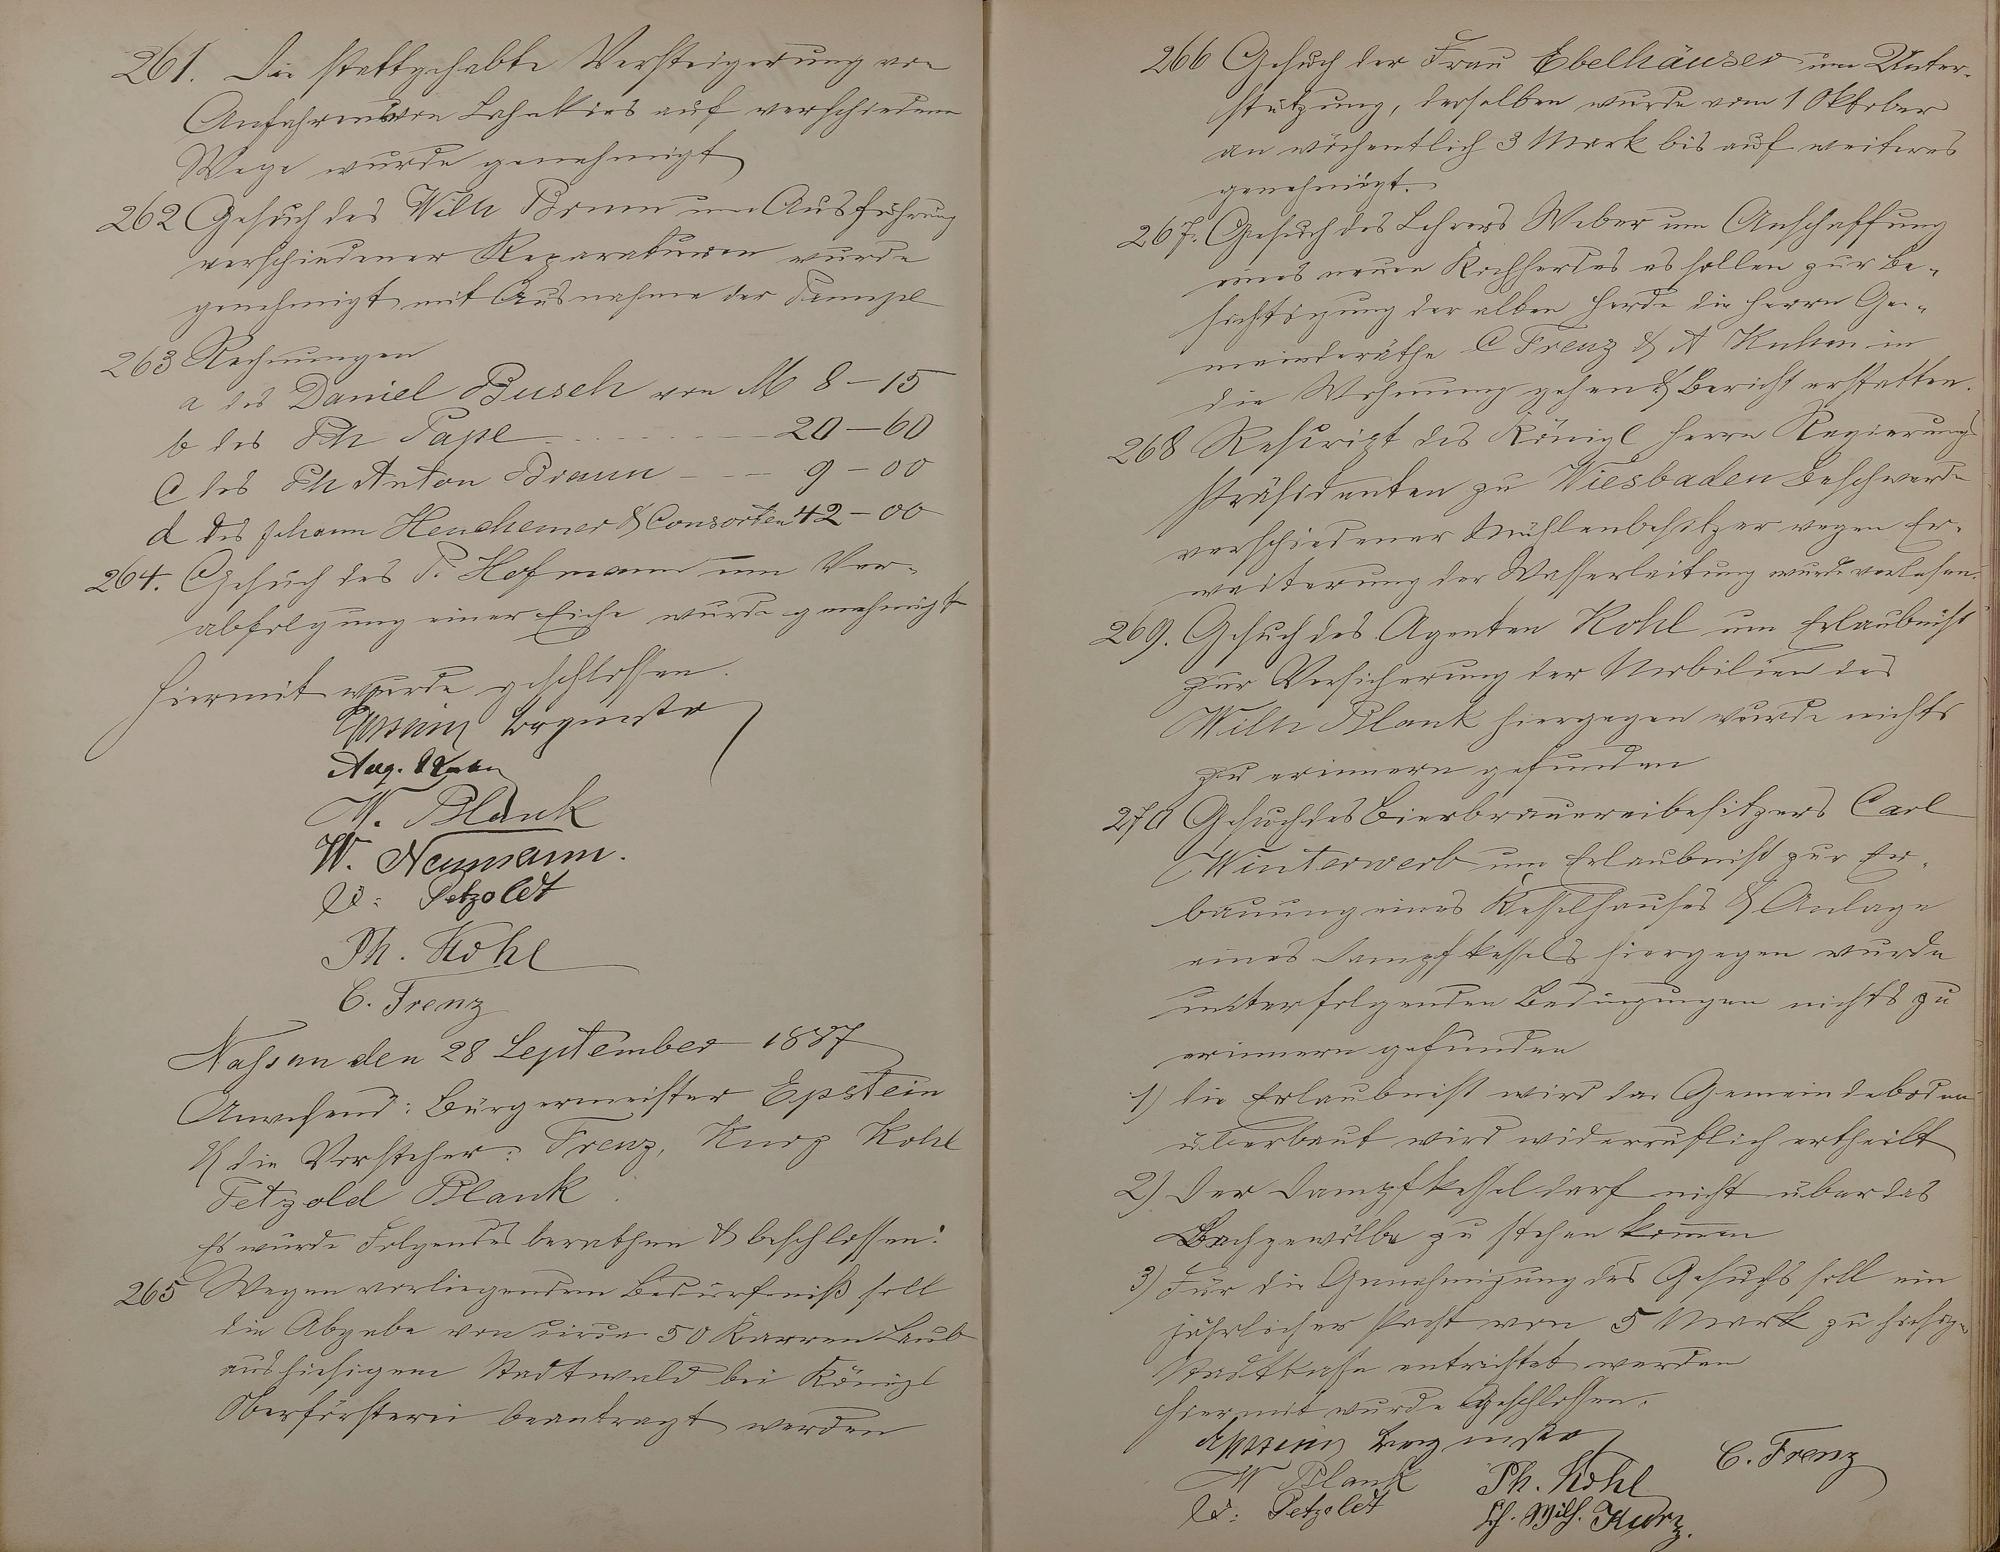 261. Die stattgehabte Versteigerung von
Anfahren von Lahnkies auf verschiedene
Wege wurde genehmigt
262 Gesuch des Wilh Braun um Ausführung
verschiedener Reparaturen wurde
genehmigt mit Ausnahme der
263 Rechnungen
a des Daniel Busch von M 8-15
b des Ph Pape 20-60
c des Ph Anton Braun 9-00
d des Johann Heuchemer & Consorten 42-00
264. Gesuch des P. Hofmann um Ver-
abfolgung einer Eiche wurde genehmigt
Hiermit wurde geschlossen.
Epstein Brgmstr
Aug. Kuhn
W. Blank
W. Neumann.
W. Petzoldt
Ph. Kohl
C. Frenz
Nassau den 28 September 1887
Anwesend: Bürgermeister Epstein
& die Vorsteher: Frenz, Kurz Kohl
Petzold Blank
Es wurde Folgendes berathen & beschlossen:
265 Wegen vorliegendem Bedürfniß soll
die Abgabe von circa 50 Karren Laub
aus hiesigem Stadtwald bei Königl
Oberförsterei beantragt werden
266 Gesuch der Frau Ebelhäuser um Unter-
stützung, derselben wurde vom 1 Oktober
an wöchentlich 3 Mark bis auf weiteres
genehmigt.
267. Gesuch des Lehrers Weber um Anschaffung
eines neuen Kochherdes es sollen zur Be-
sichtigung der alten Herde die Herrn Ge-
meinderäthe C Frenz & A Kuhn in
die Wohnung gehen & Bericht erstatten.
268 Rescript des Königl Herrn Regierungs
Präsidenten zu Wiesbaden Beschwerde
verschiedener Mühlenbesitzer wegen Er-
weiterung der Wasserleitung wurde verlesen.
269. Gesuch des Agenten Kohl um Erlaubnist
zur Versicherung der Mobilien des
Wilh Blank hiergegen wurde nichts
zu erinnern gefunden
270 Gesuch des Bierbrauereibesitzers Carl
Winterwerb um Erlaubnist zur Er-
bauung eines Kesselhauses & Anlage
eines Dampfkessels hiergegen wurde
unter folgenden Bedingungen nichts zu
erinnern gefunden
1) die Erlaubnist wird da Gemeindeboden
überbaut wird widerruflich ertheilt
2) Der Dampfkessel darf nicht über das
Bachgewölbe zu stehen kommen
3) Für die Genehmigung des Gesuchs soll ein
jährlicher Pacht von 5 Mark zu hiesiger
Stadtkasse entrichtet werden
Hiermit wurde Geschlossen.
Epstein Brgmstr
C. Frenz
W Blank Ph. Kohl
W. Petzoldt Ch. Wilh. Kurz.